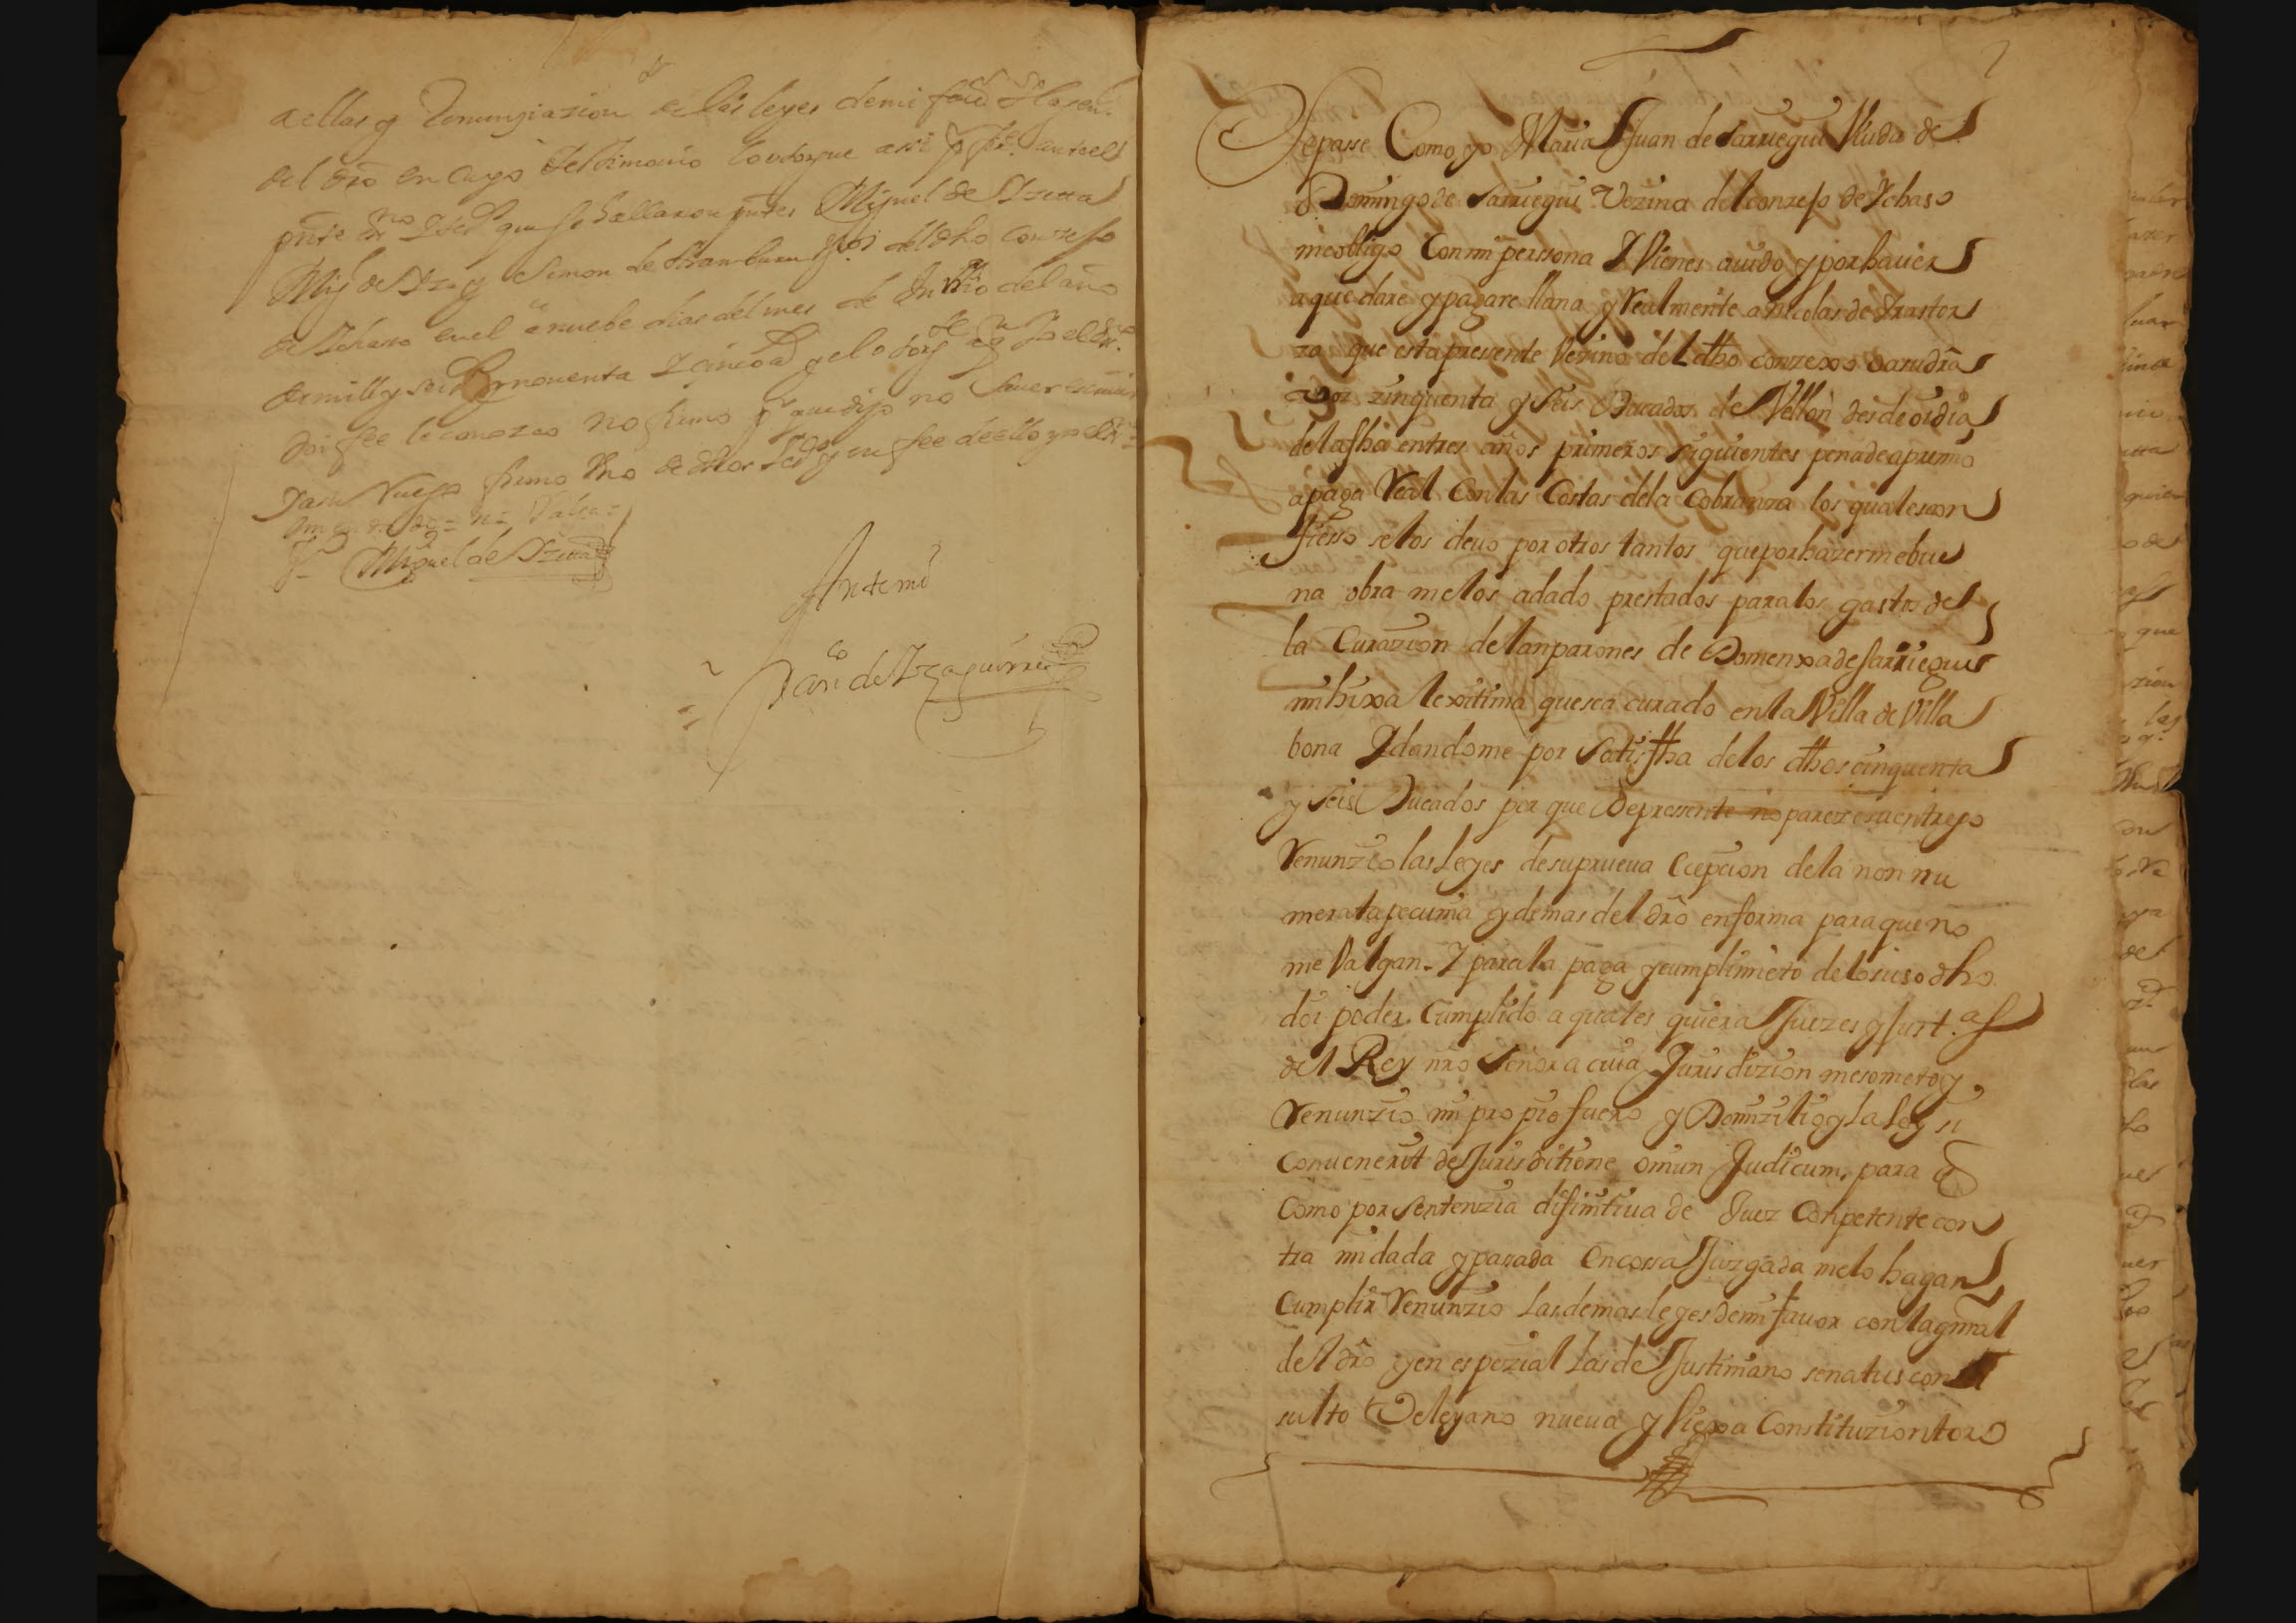 aellas y Renungiazion de las leyes demi fauor Con la gen.l
del dro en cuyo testimonio lo otorgue assi
pnte essno Y tes.os que se hallaron pntes Miguel de Yzetta
Simon de Aramburu del dho conzejo
de Ychaso en el a nuebe dias del mes de del año
de mill y seis.s y nouenta Y cinco
doi fee le conozco no firmo por que dijo no sauer escriuir
Yasu Ruego firmo Vno de dhos tes.os y en fee de ello yo el
Miguel de Yzetta
Antemi
Fran.co de Yzaguirre
Sepasse Como yo Maria Juan de Sarriegui Viuda de
Domingo de Sarriegui Vezina del conzejo de Ychaso
me obligo Con mi perssona Y Vienes auido y por hauer
a que dare y pagare llana y Realmente a Nicolas de Arastor
za que esta presente Vezino del dho conzexo o a ru dra
zinquenta y seis Ducados de Vellon desde oi dia
de la fha en tres años primeros siguientes pena de apremio
a paga Real Con las Costas de la Cobranza los quales con
fiesso se los deuo por otros tantos que por hazerme bue
na obra me los a dado prestados para los gastos de
la Curazion de lanparones de Domenxa de Sarriegui
mi hixa lexitima que se a curado en la Villa de Villa
bona Y dandome por Satisfha de los dhos cinquenta
y seis Ducados por que De pressente no pareze su entrego
Renunzio las Leyes de su prueua Ecepcion de la non nu
merata pecunia y demas del dro en forma para que no
me Valgan. Y para la paga y cumplimieto de lo suso dho
doi poder Cumplido a quales quiera Juezes y Just.as
del Rey nro Señor a cuia Jurisdizion me someto y
Renunzio mi propio fuero y Domizilio y la ley si
Conuenerit de Jurisditione omiun Judicum, para q
Como por sentenzia difinitiua de Juez Conpetente con
tra mi dada y pasada En cossa Juzgada me lo hagan
Cumplir Renunzio Las demas leyes de mi fauor con la gnral
del dro y en espezial Las de Justiniano senatus con
sulto Veleyano nueua y Viexa Constituzion toro